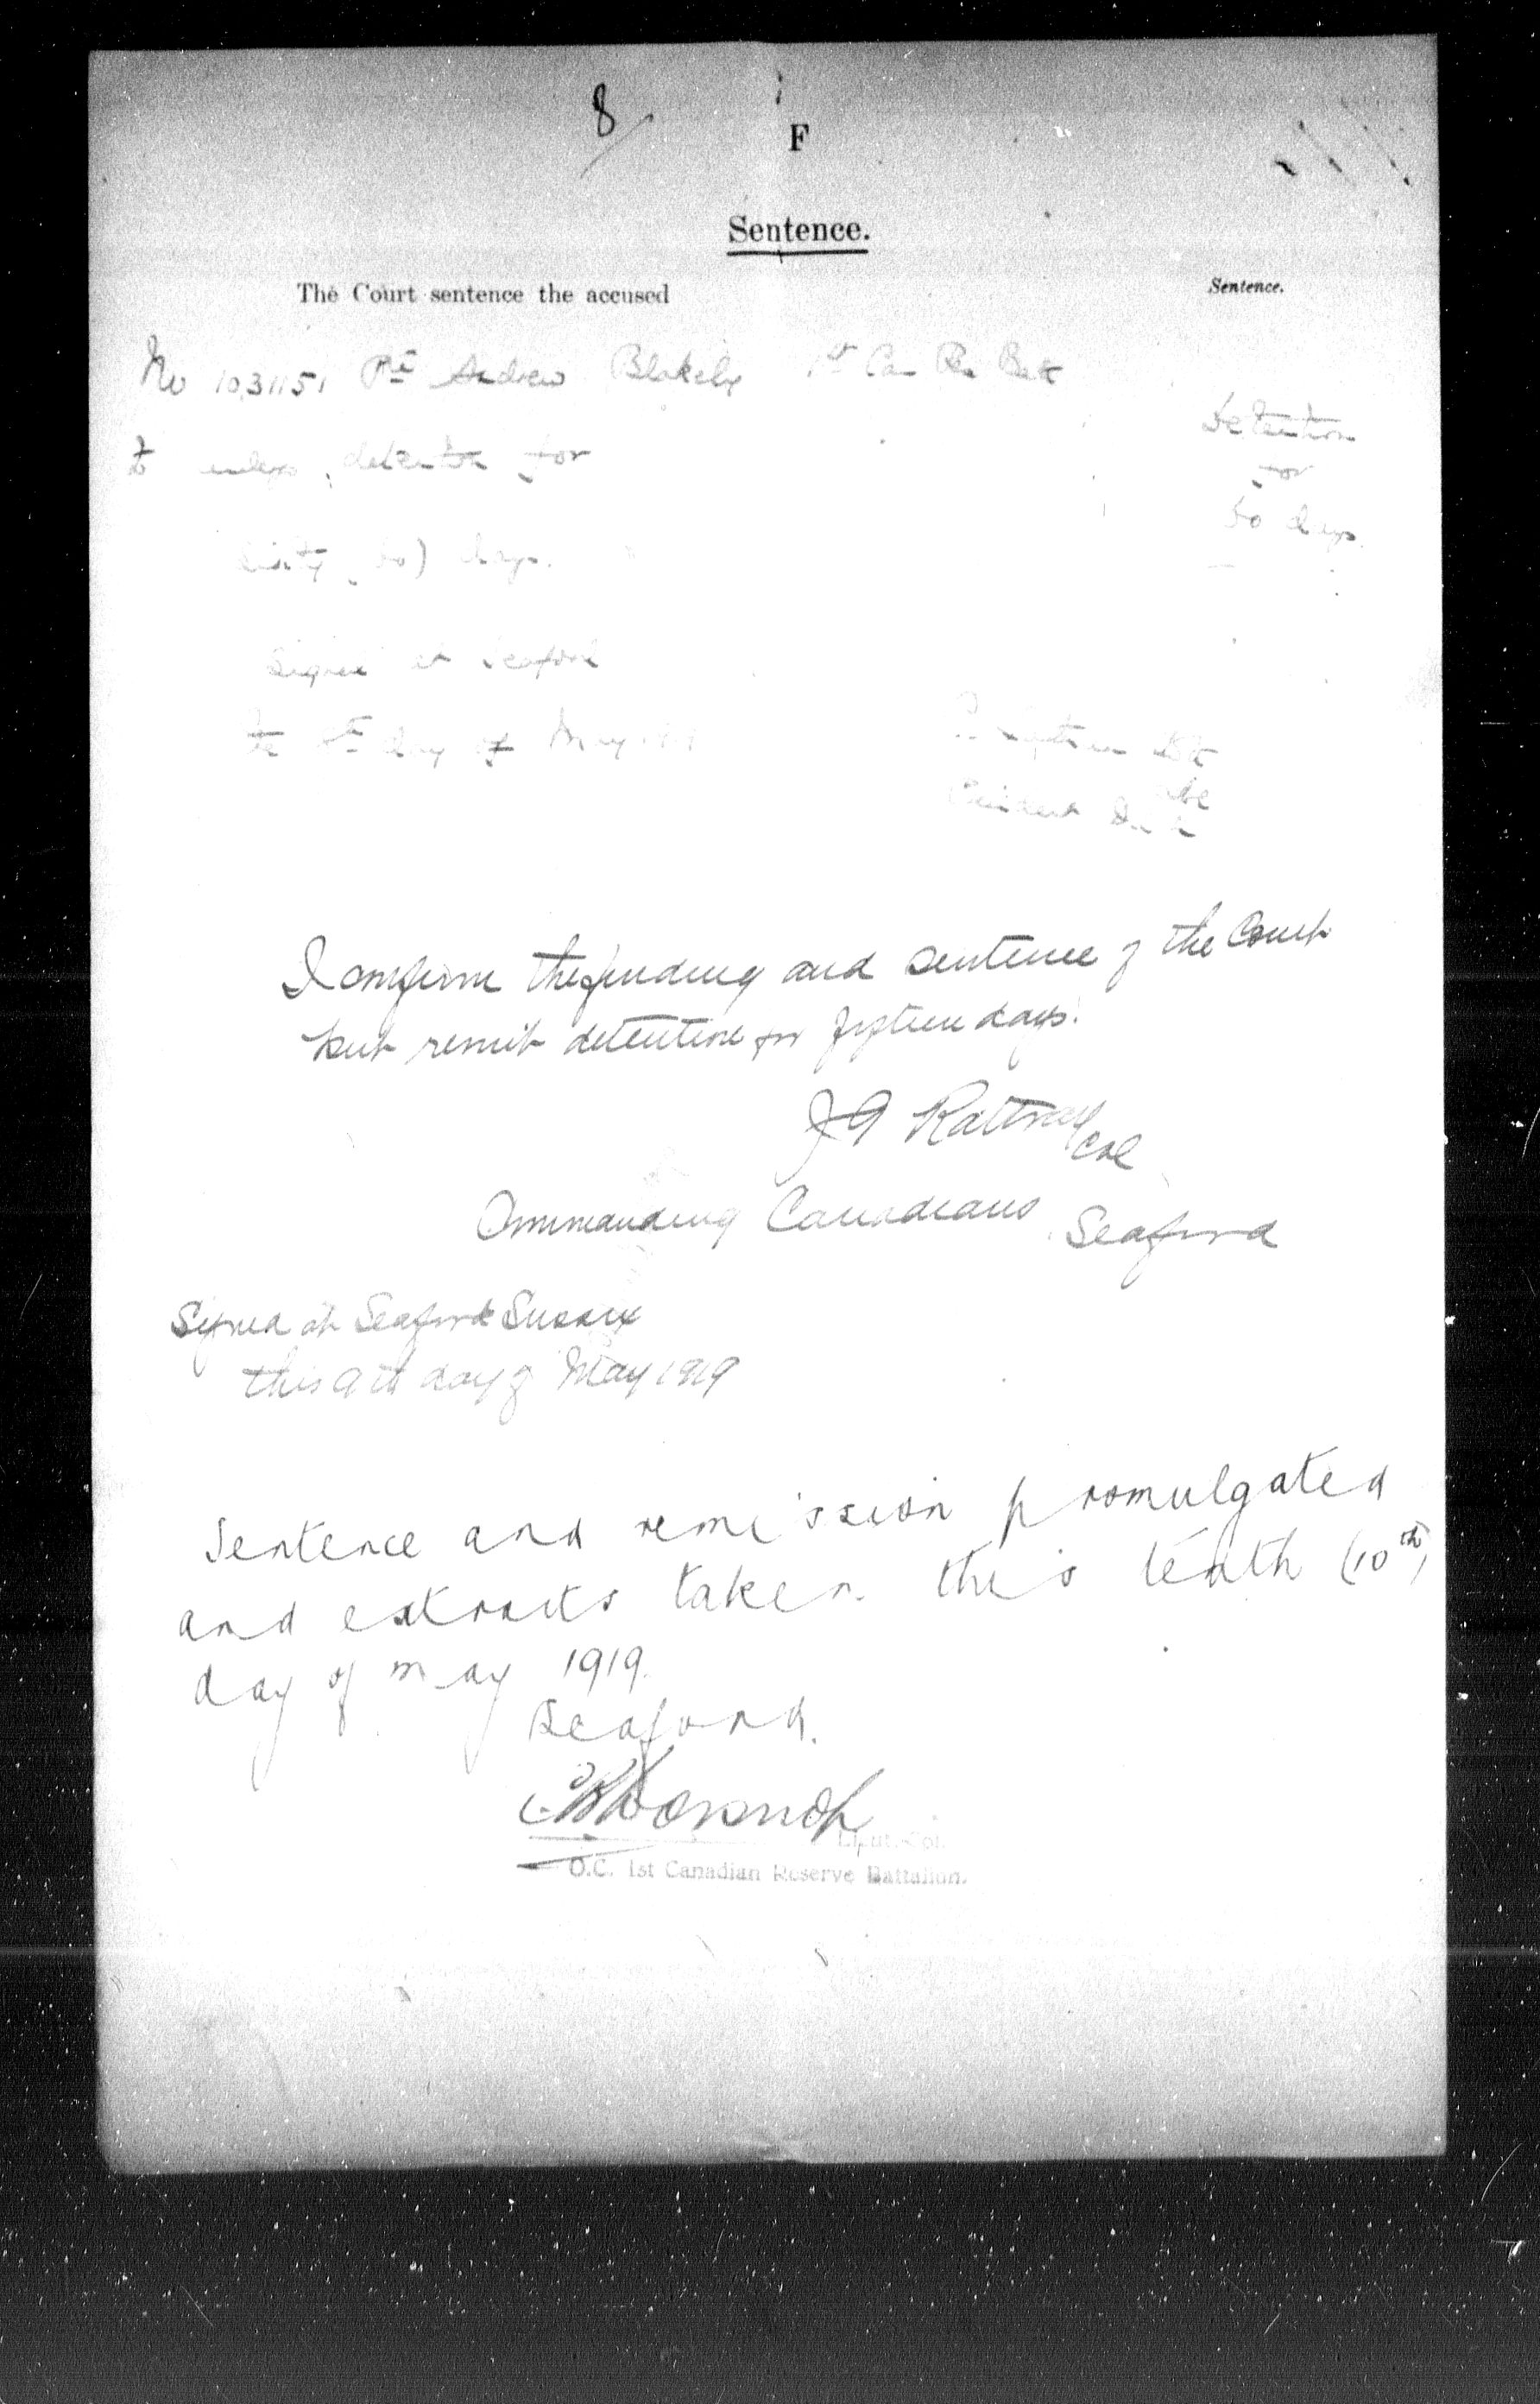 8
F
Sentence.
The Court sentence the accused
Sentence.
No 1031151 Pte Andrew Blakely 1st Can Res Batt
to undergo detention for
Detention
for
60 days
sixty (60) days.
Signed at Seaford
the day of May
President
I confirm the finding and sentence of the Court
but remit detention for fifteen days.
J G Rattray Col
Commanding Canadians, Seaford
Signed at Seaford Sussex
this 9th day of May 1919
Sentence and remission promulgated
and extracts taken this tenth (10th)
day of may 1919.
Seaford.
Lieut.-Col.
O.C. 1st Canadian Reserve Battalion.